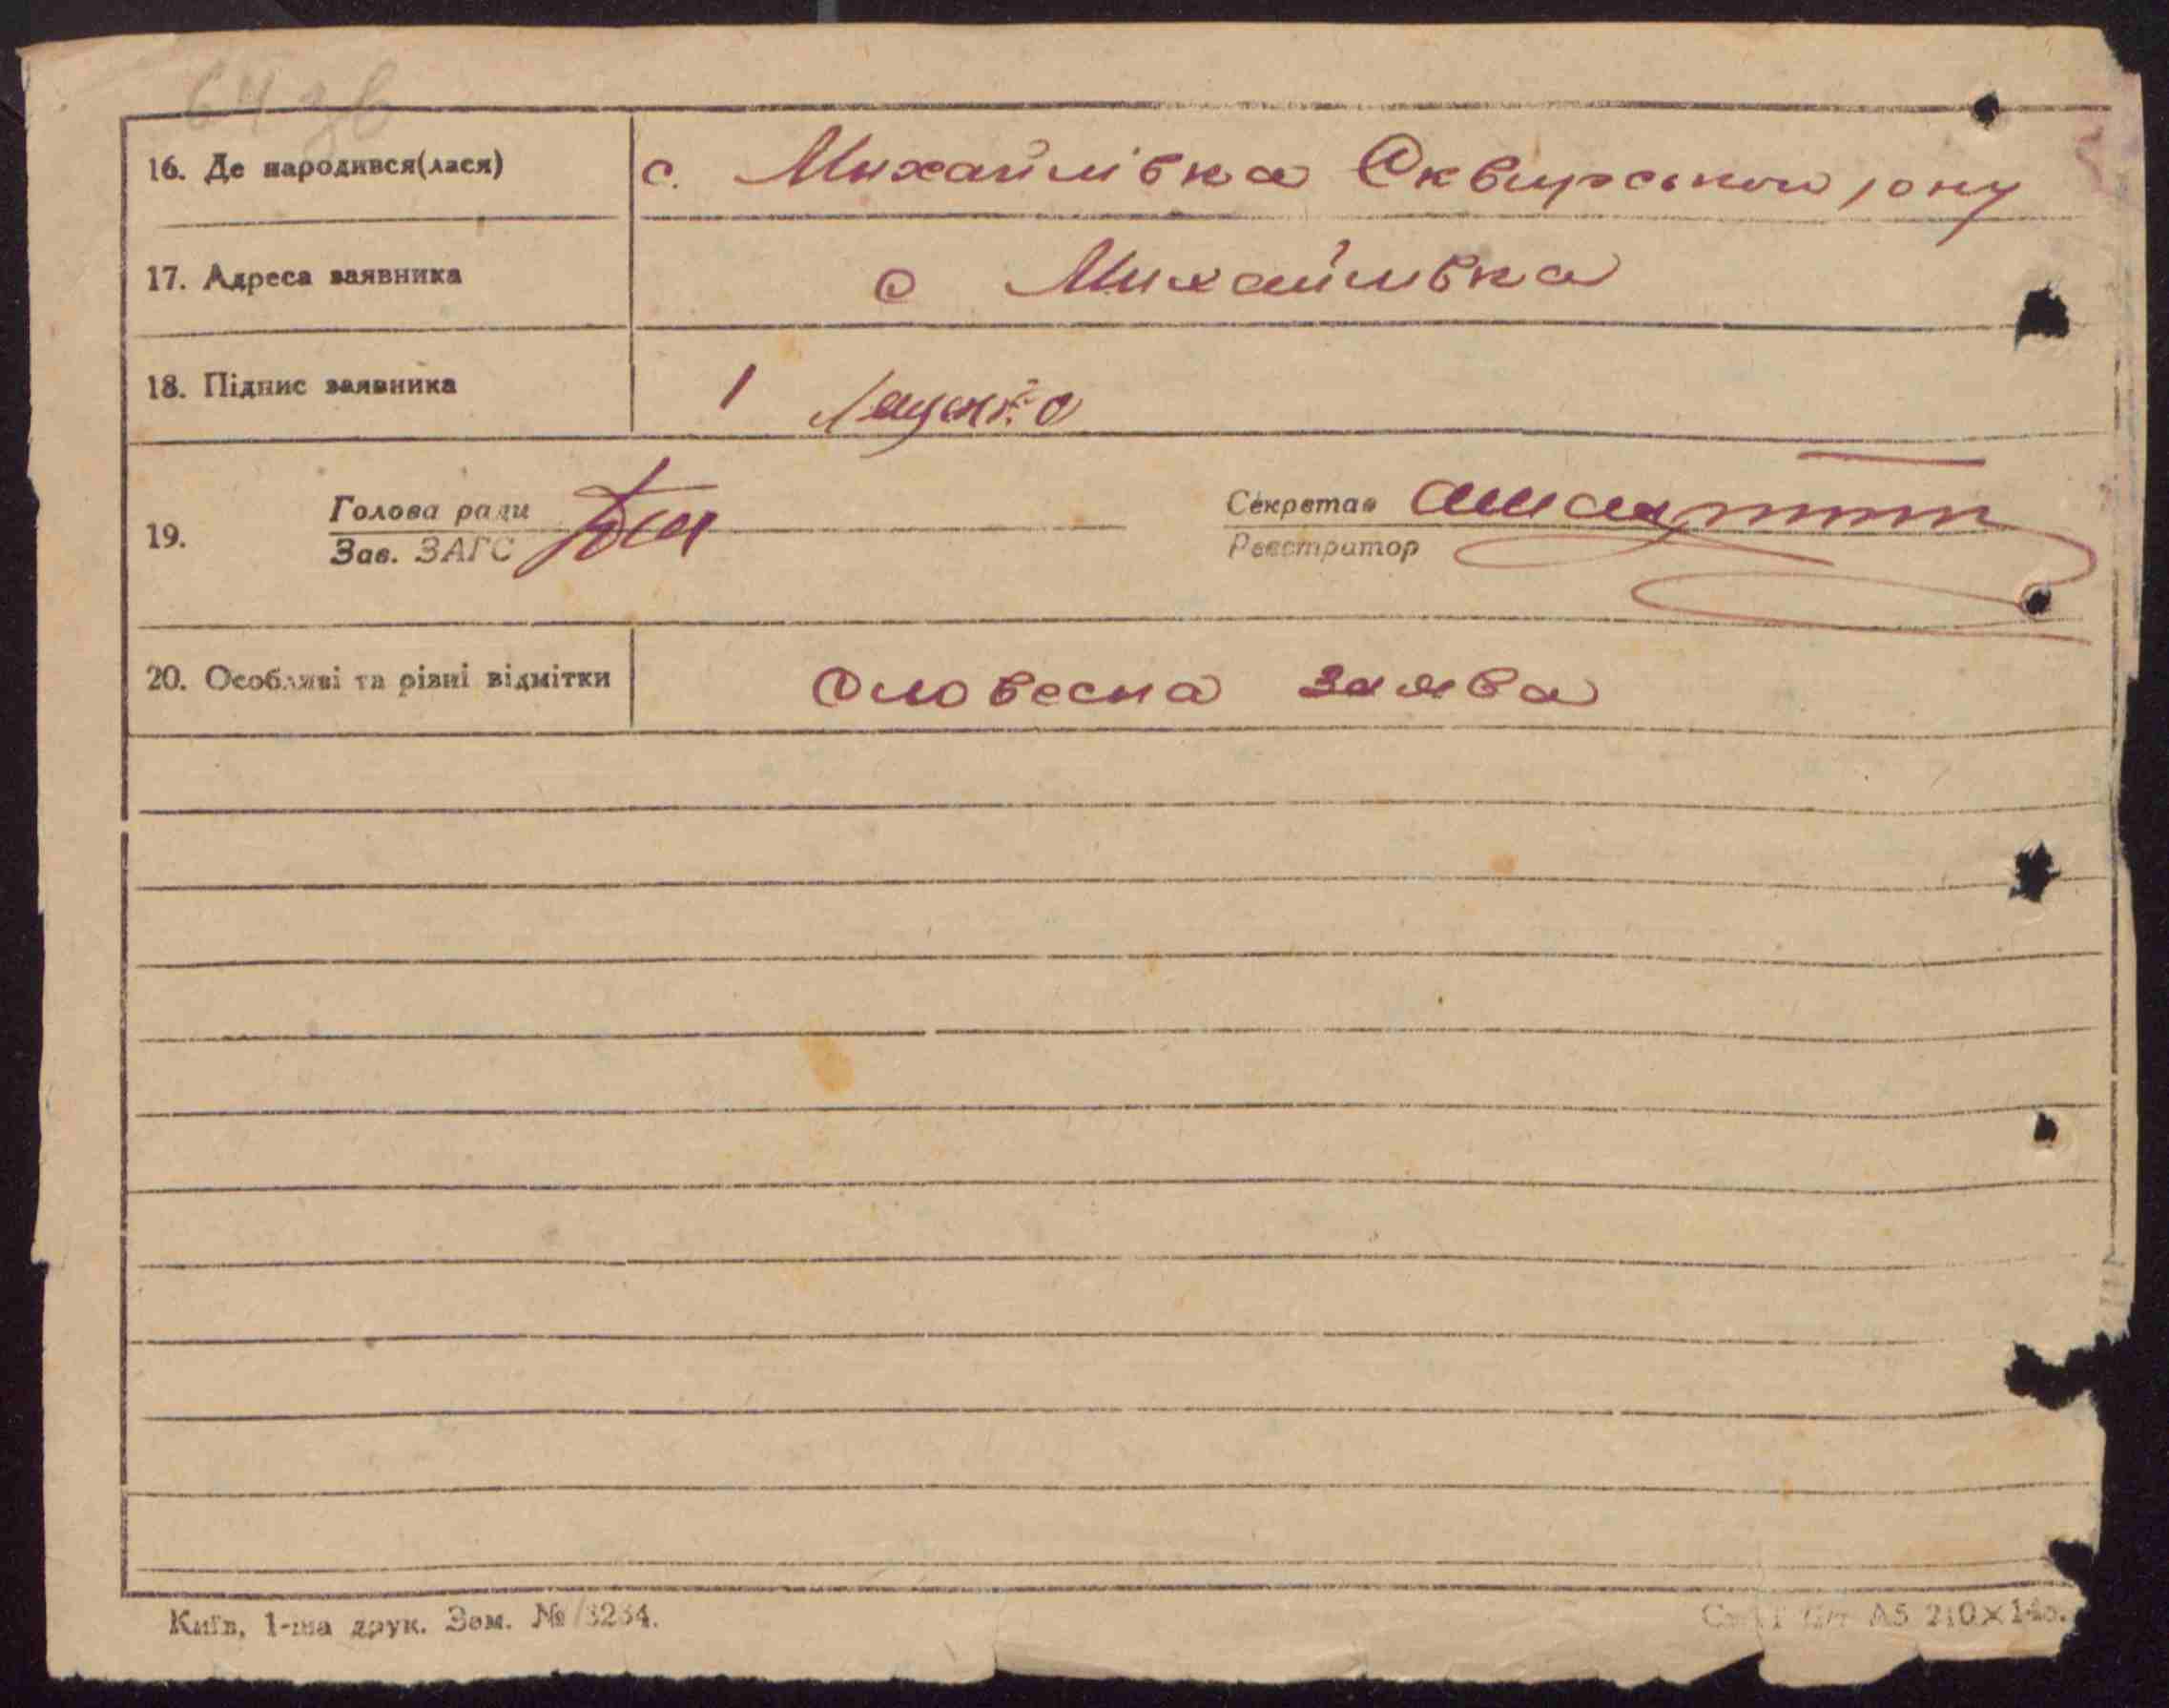 64 зв
16. Де народився(лася) с. Михайлівка Сквирського р-ну
17. Адреса заявника с Михайлівка
18. Підпис заявника
19. Голова ради Секретар
Зав. ЗАГС Реєстратор
20. Особливі та різні відмітки словесна заява
Київ, 1-ша друк. Зам. № 3234. А5 210×148.